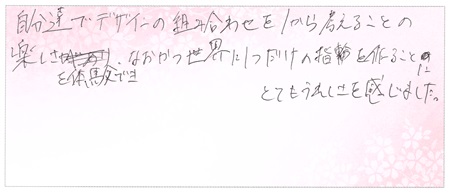 自分達でデザインの組み合わせを1から考えることの
楽しさを体験でき、なおかつ世界に1つだけの指輪を作ることに
とてもうれしさを感じました。